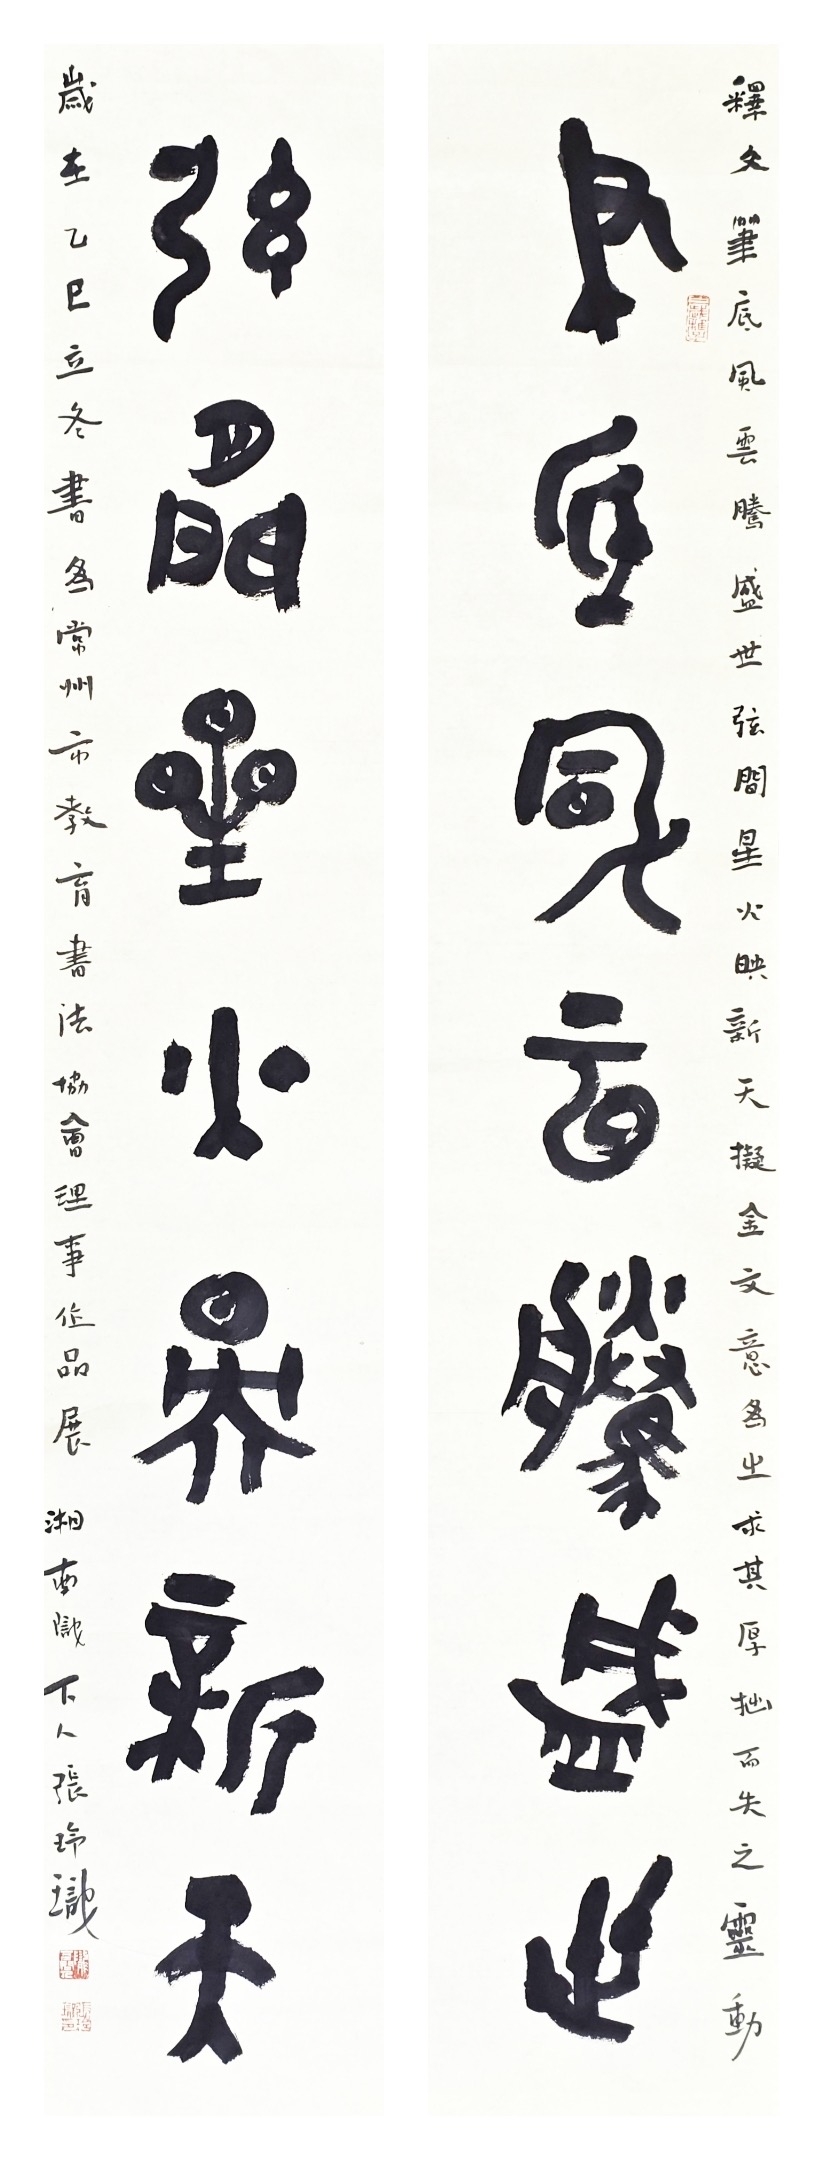 釋文筆底風雲騰盛世弦間星火映新天擬金文意為之求其厚拙而失之靈動
筆底風雲騰盛世
弦間星火映新天
歲在乙巳立冬書為常州市教育書法協會理事作品展 湘南 下人張玲